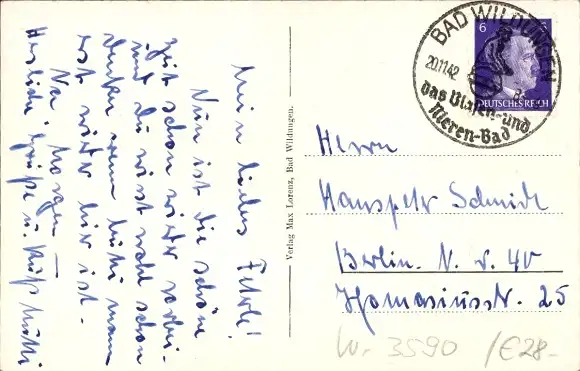 Mein liebes Peterle!
Nun ist die schöne
Zeit schon wieder vorbei-
und Du wirst wohl schon
denken wenn Mutti man
erst wieder hier ist.
Na morgen —
Herzliche Grüße u. Kuß Mutti
Verlag Max Lorenz, Bad Wildungen.
BAD WILDUNGEN
20.11.42
das Blasen-und
Nieren-Bad
6
DEUTSCHES REICH
Herrn
Hanspeter Schmidt
Berlin. N. W. 40
Thomasiusstr. 25
W. 3590 /€28-